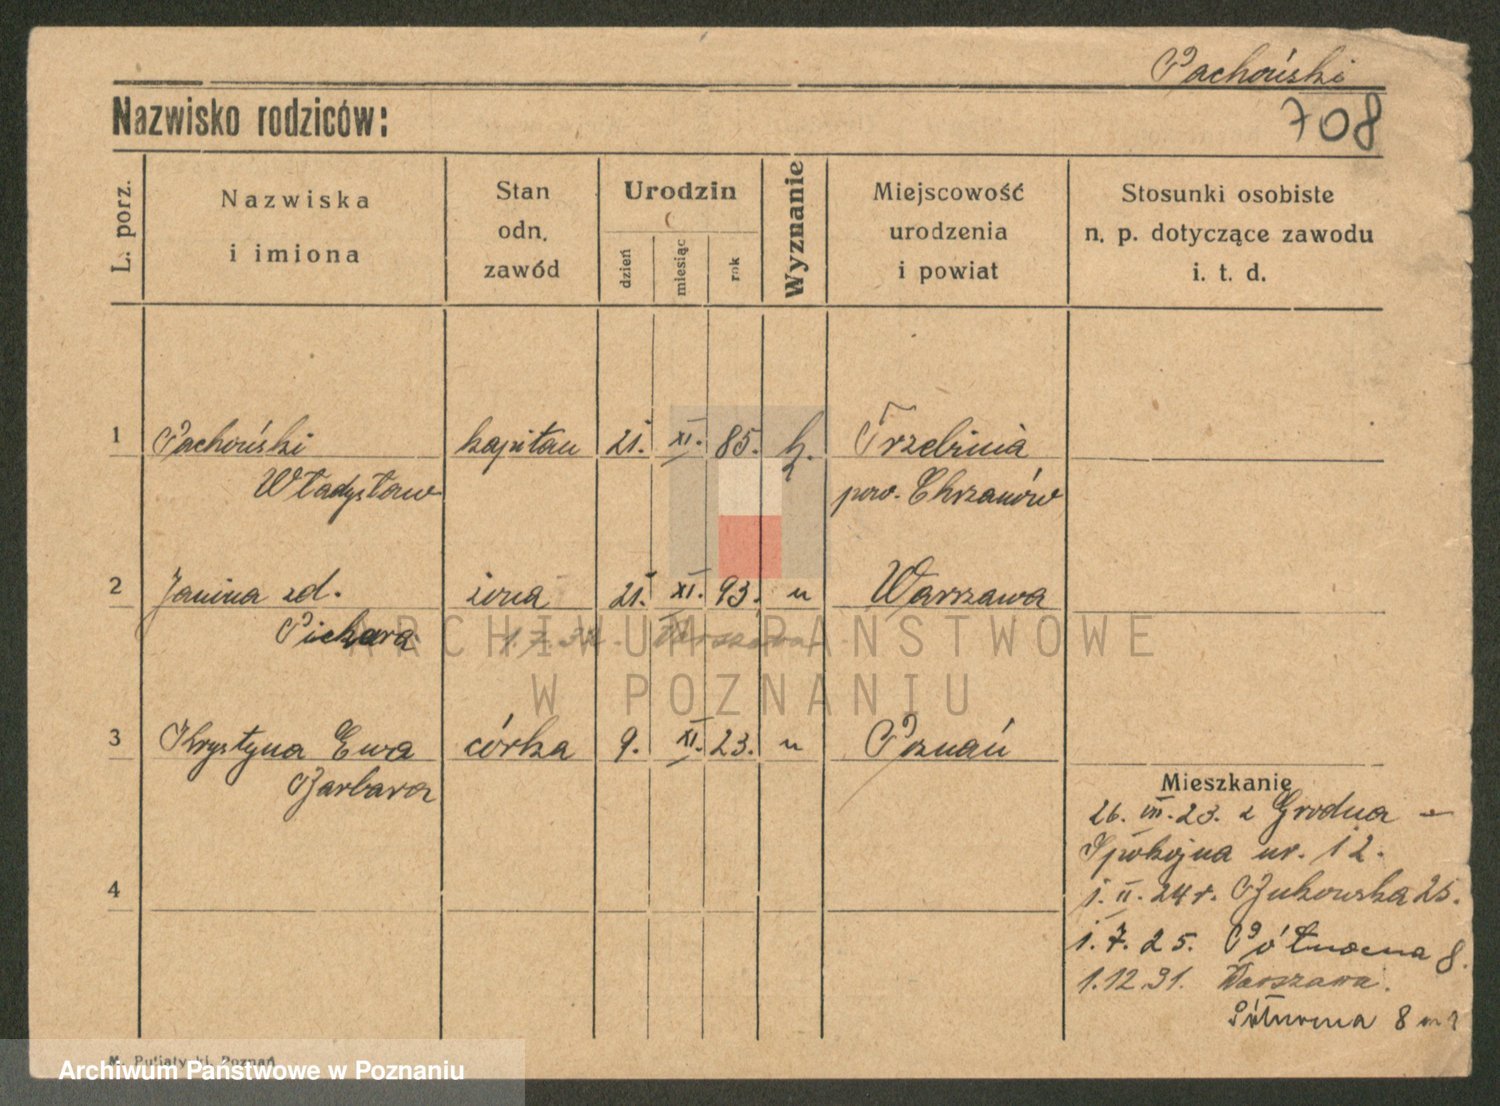 Pachoński
708
Nazwisko rodziców:
L. porz.
Nazwiska
i imiona
Stan
odn.
zawód
Urodzin
dzień
miesiąc
rok
Wyznanie
Miejscowość
urodzenia
i powiat
Stosunki osobiste
n. p. dotyczące zawodu
i. t. d.
1 Pachoński kapitan 21. XI. 85. k. Trzebinia
Władysław pow. Chrzanów
2 Janina zd. żona 21. XI. 93. u Warszawa
Piekara 1.7.32. Warszawa
3 Krystyna Ewa córka 9. XI. 23. u Poznań
Barbara
Mieszkanie
26. VII. 23. z Grodna -
Spokojna nr. 12.
4
1. II. 24 r. Bukowska 25.
1. 7. 25. Północna 8.
1.12.31. Warszawa.
Północna 8 m
ARCHIWUM PAŃSTWOWE
W POZNANIU
M. Putiatycki, Poznań
Archiwum Państwowe w Poznaniu